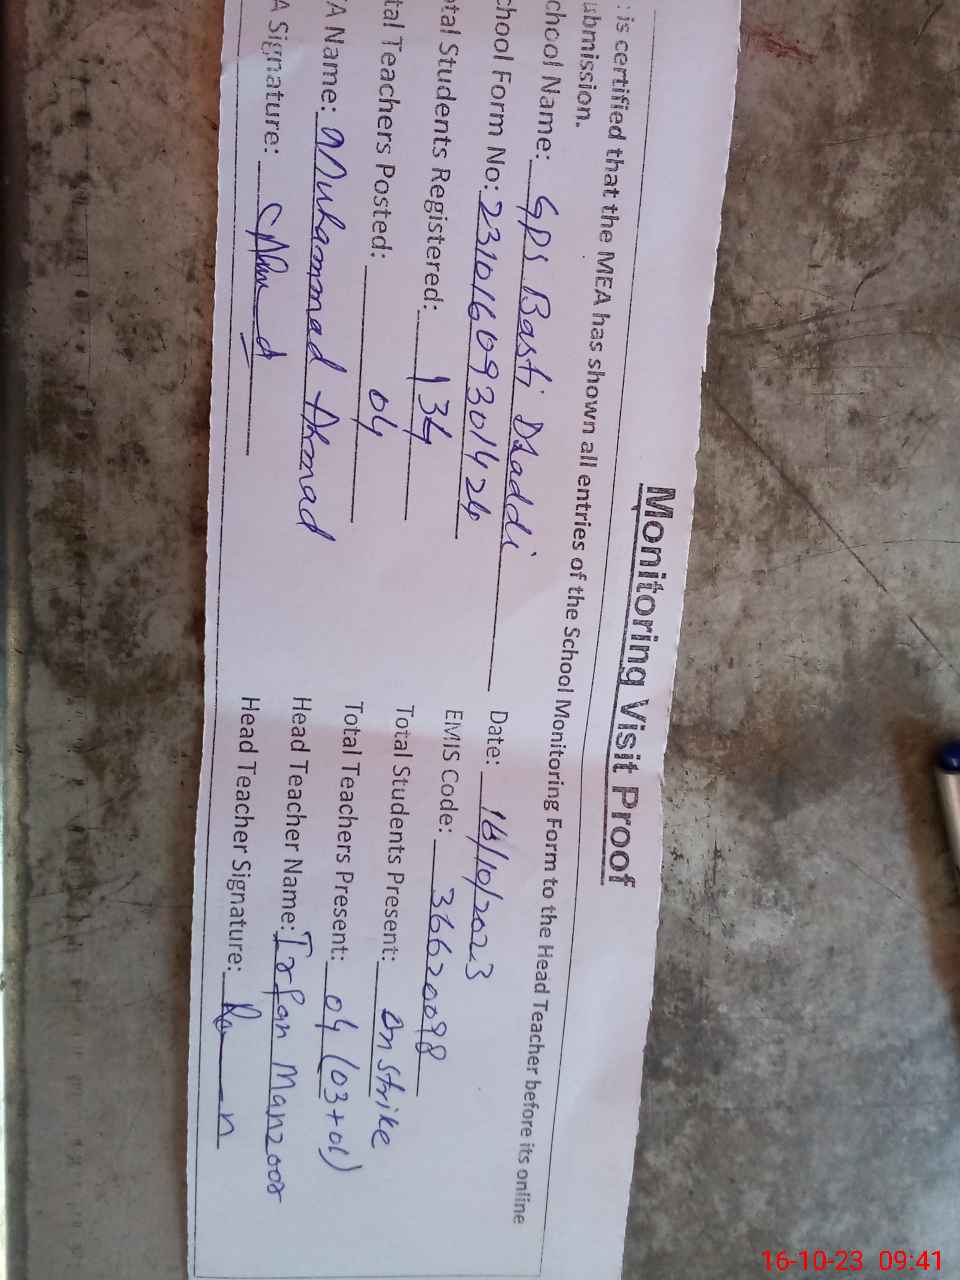 Monitoring Visit Proof
: is certified that the MEA has shown all entries of the School Monitoring Form to the Head Teacher before its online
ubmission.
chool Name: GPS Basti Dhaddi Date: 16/10/2023
chool Form No: 23101609301424 EMIS Code: 36620098
otal Students Registered: 134 Total Students Present: on strike
tal Teachers Posted: 04 Total Teachers Present: 04 (03+01)
A Name: Muhammad Ahmad Head Teacher Name: Irfan Manzoor
A Signature: Head Teacher Signature:
16-10-23 09:41